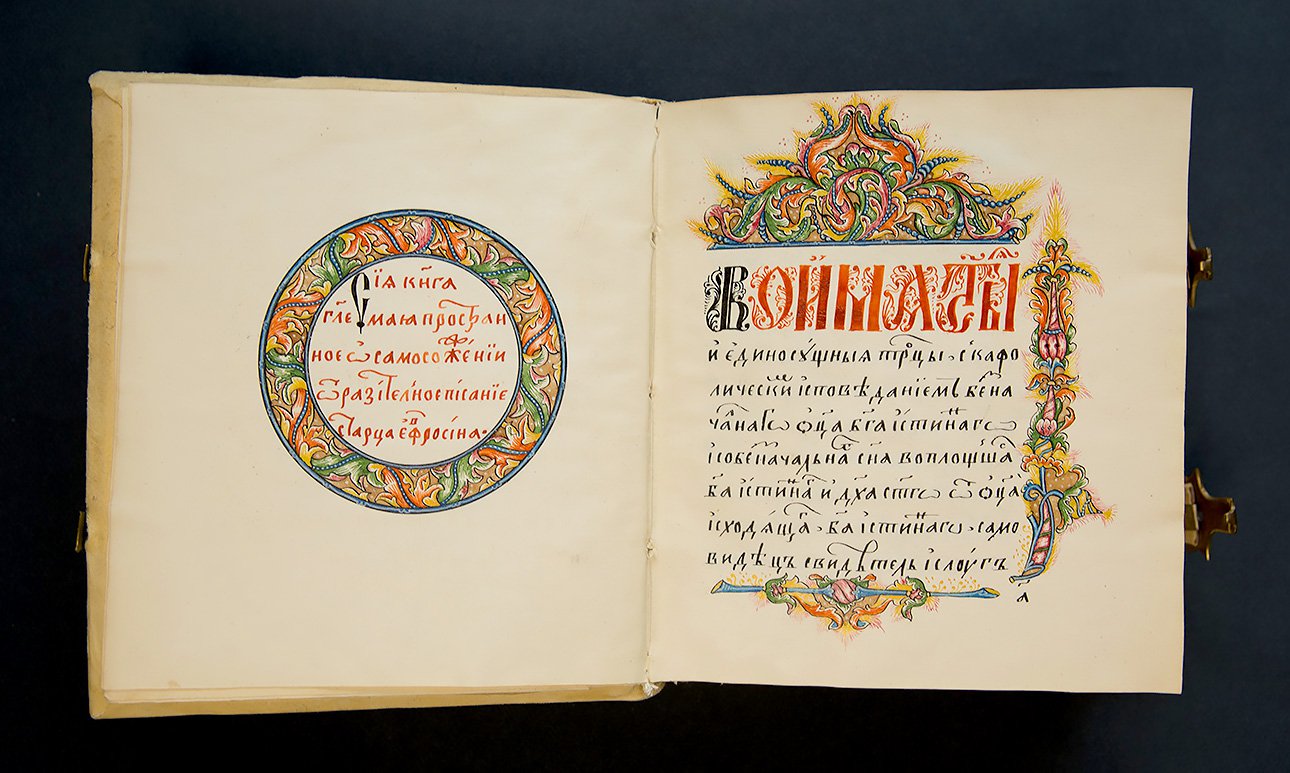 Сїѧ кни́га
гл҃емаѧ простран
ное ѡ самосожженїи
ѿразител̾ное писанїе
старца еѵфросина·
Во имѧ ст҃ыѧ
и единосꙋщныѧ трⷪ҇цы· с каѳо
лическиⷨ исповѣданїемъ беꙁна
чалнагѡ ѻц҃а бг҃а истиннагѡ
і собеꙁначалнаⷢ҇ сн҃а воплощшаⷢ҇
бг҃а истиннаⷢ҇ и дх҃а ст҃гѡ ѿ ѻц҃а
исходѧщаⷢ҇· бг҃а истиннагѡ· само
видѣцъ свидѣтель і слꙋгъ
а҃